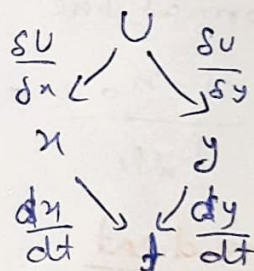 U
δU/δx δU/δy
x y
dx/dt t dy/dt